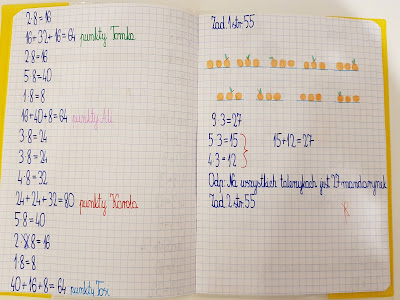 2·8=16
16+32+16=64 punkty Tomka
2·8=16
5·8=40
1·8=8
16+40+8=64 punkty Ali
3·8=24
3·8=24
4·8=32
24+24+32=80 punkty Komka
5·8=40
2·8=16
1·8=8
40+16+8=64 punkty Tosi
Zad 1 str. 55
9·3=27
5·3=15
15+12=27
4·3=12
Odp. Na wszystkich talerzykach jest 27 mandarynek
Zad 2 str. 55